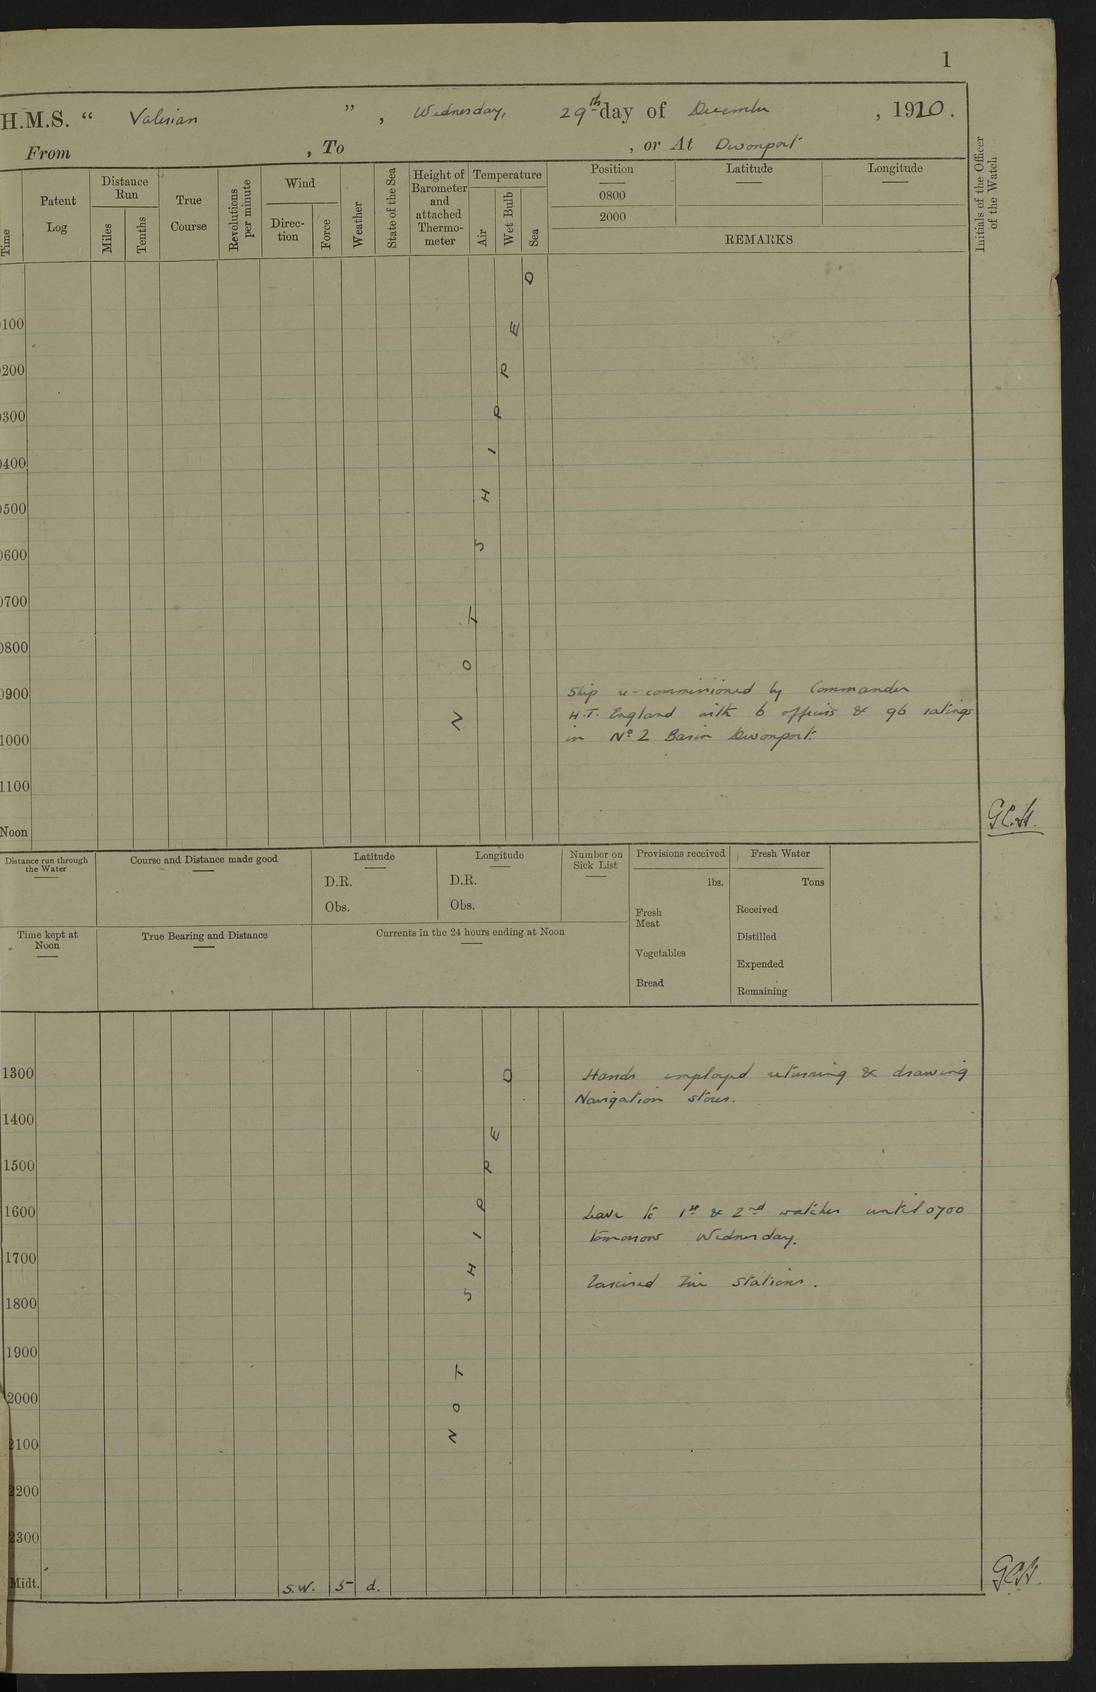 1
H.M.S. “ Valerian ” , Wednesday, 29th day of December , 1920.
From , To , or At Devonport
Time
Patent Log
Distance Run
Miles
Tenths
True Course
Revolutions per minute
Wind
Direc-tion
Force
Weather
State of the Sea
Height of Barometer and attached Thermo-meter
Temperature
Air
Wet Bulb
Sea
Position
0800
2000
Latitude
Longitude
REMARKS
Initials of the Officer of the Watch
0100
0200
0300
0400
0500
0600
0700
0800
0900
1000
1100
Noon
NOT SHIPPED
Ship re-commissioned by Commander
H.T. England with 6 officers & 96 ratings
in No 2 Basin Devonport.
Distance run through the Water
Course and Distance made good
Latitude
D.R.
Obs.
Longitude
D.R.
Obs.
Number on Sick List
Provisions received
lbs.
Fresh Meat
Vegetables
Bread
Fresh Water
Tons
Received
Distilled
Expended
Remaining
Time kept at Noon
True Bearing and Distance
Currents in the 24 hours ending at Noon
1300
1400
1500
1600
1700
1800
1900
2000
2100
2200
2300
Midt.
NOT SHIPPED
Hands employed returning & drawing
Navigation stores.
Leave to 1st & 2nd watches until 0700
tomorrow Wednesday.
Exercised Fire Stations.
S.W. 5 d.